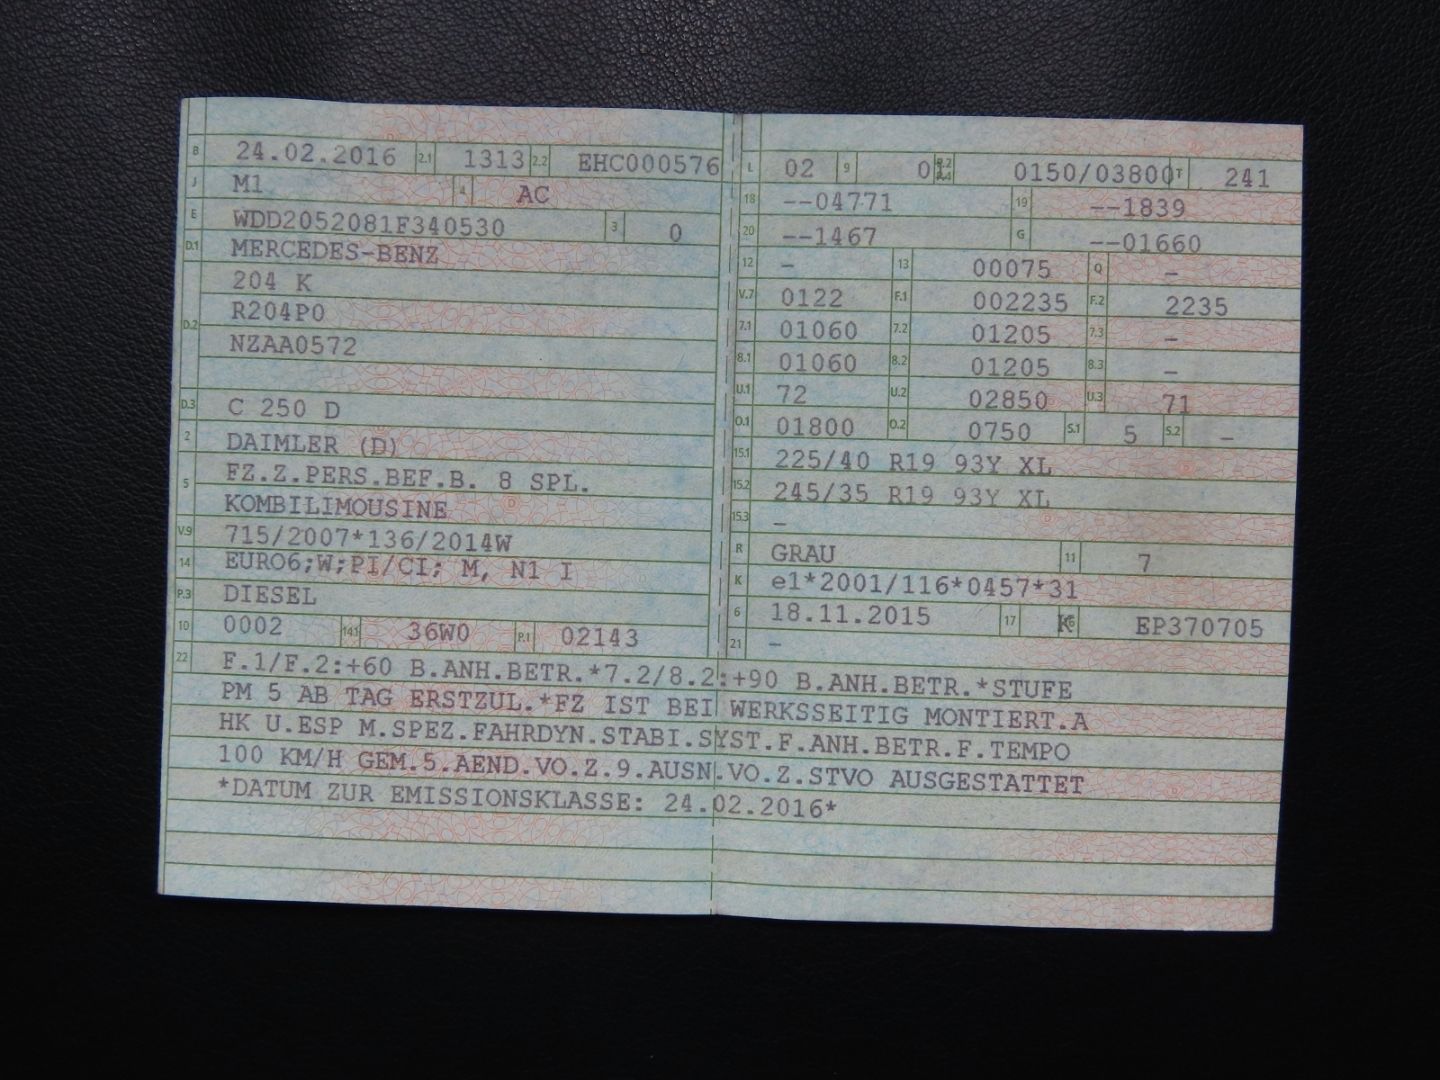 B 24.02.2016 2.1 1313 2.2 EHC000576
J M1 4 AC
E WDD2052081F340530 3 0
D.1 MERCEDES-BENZ
204 K
D.2 R204P0
NZAA0572
D.3 C 250 D
2 DAIMLER (D)
5 FZ.Z.PERS.BEF.B. 8 SPL.
KOMBILIMOUSINE
V.9 715/2007*136/2014W
14 EURO6;W;PI/CI; M, N1 I
P.3 DIESEL
10 0002 14.1 36W0 P.1 02143
L 02 9 0 P.2 P.4 0150/03800 T 241
18 --04771 19 --1839
20 --1467 G --01660
12 - 13 00075 Q -
V.7 0122 F.1 002235 F.2 2235
7.1 01060 7.2 01205 7.3 -
8.1 01060 8.2 01205 8.3 -
U.1 72 U.2 02850 U.3 71
O.1 01800 O.2 0750 S.1 5 S.2 -
15.1 225/40 R19 93Y XL
15.2 245/35 R19 93Y XL
15.3 -
R GRAU 11 7
K e1*2001/116*0457*31
6 18.11.2015 17 K EP370705
21 -
22 F.1/F.2:+60 B.ANH.BETR.*7.2/8.2:+90 B.ANH.BETR.*STUFE
PM 5 AB TAG ERSTZUL.*FZ IST BEI WERKSSEITIG MONTIERT.A
HK U.ESP M.SPEZ.FAHRDYN.STABI.SYST.F.ANH.BETR.F.TEMPO
100 KM/H GEM.5.AEND.VO.Z.9.AUSN.VO.Z.STVO AUSGESTATTET
*DATUM ZUR EMISSIONSKLASSE: 24.02.2016*